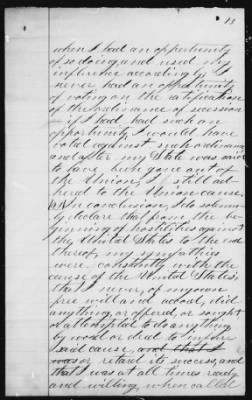 13
when I had an opportunity
of so doing and used my
influence accordingly; I
never had an opportunity
of voting on the ratification
of the ordinance of secession
if I had had such an
opportunity I would have
voted against such ordinance
and after my State was said
to have been gone out of
the Union, I still ad-
hered to the Union cause.
In conclusion, I do solemn-
ly declare that from the be-
ginning of hostilities against
the United States to the end
thereof, my sympathies
were constantly with the
cause of the United States;
that I never, of my own
free will and accord, did
anything, or offered, or sought
or attempted to do anything
by word or deed to injure
said cause, and that I
or retard its success, and
that I was at all times ready
and willing, when called